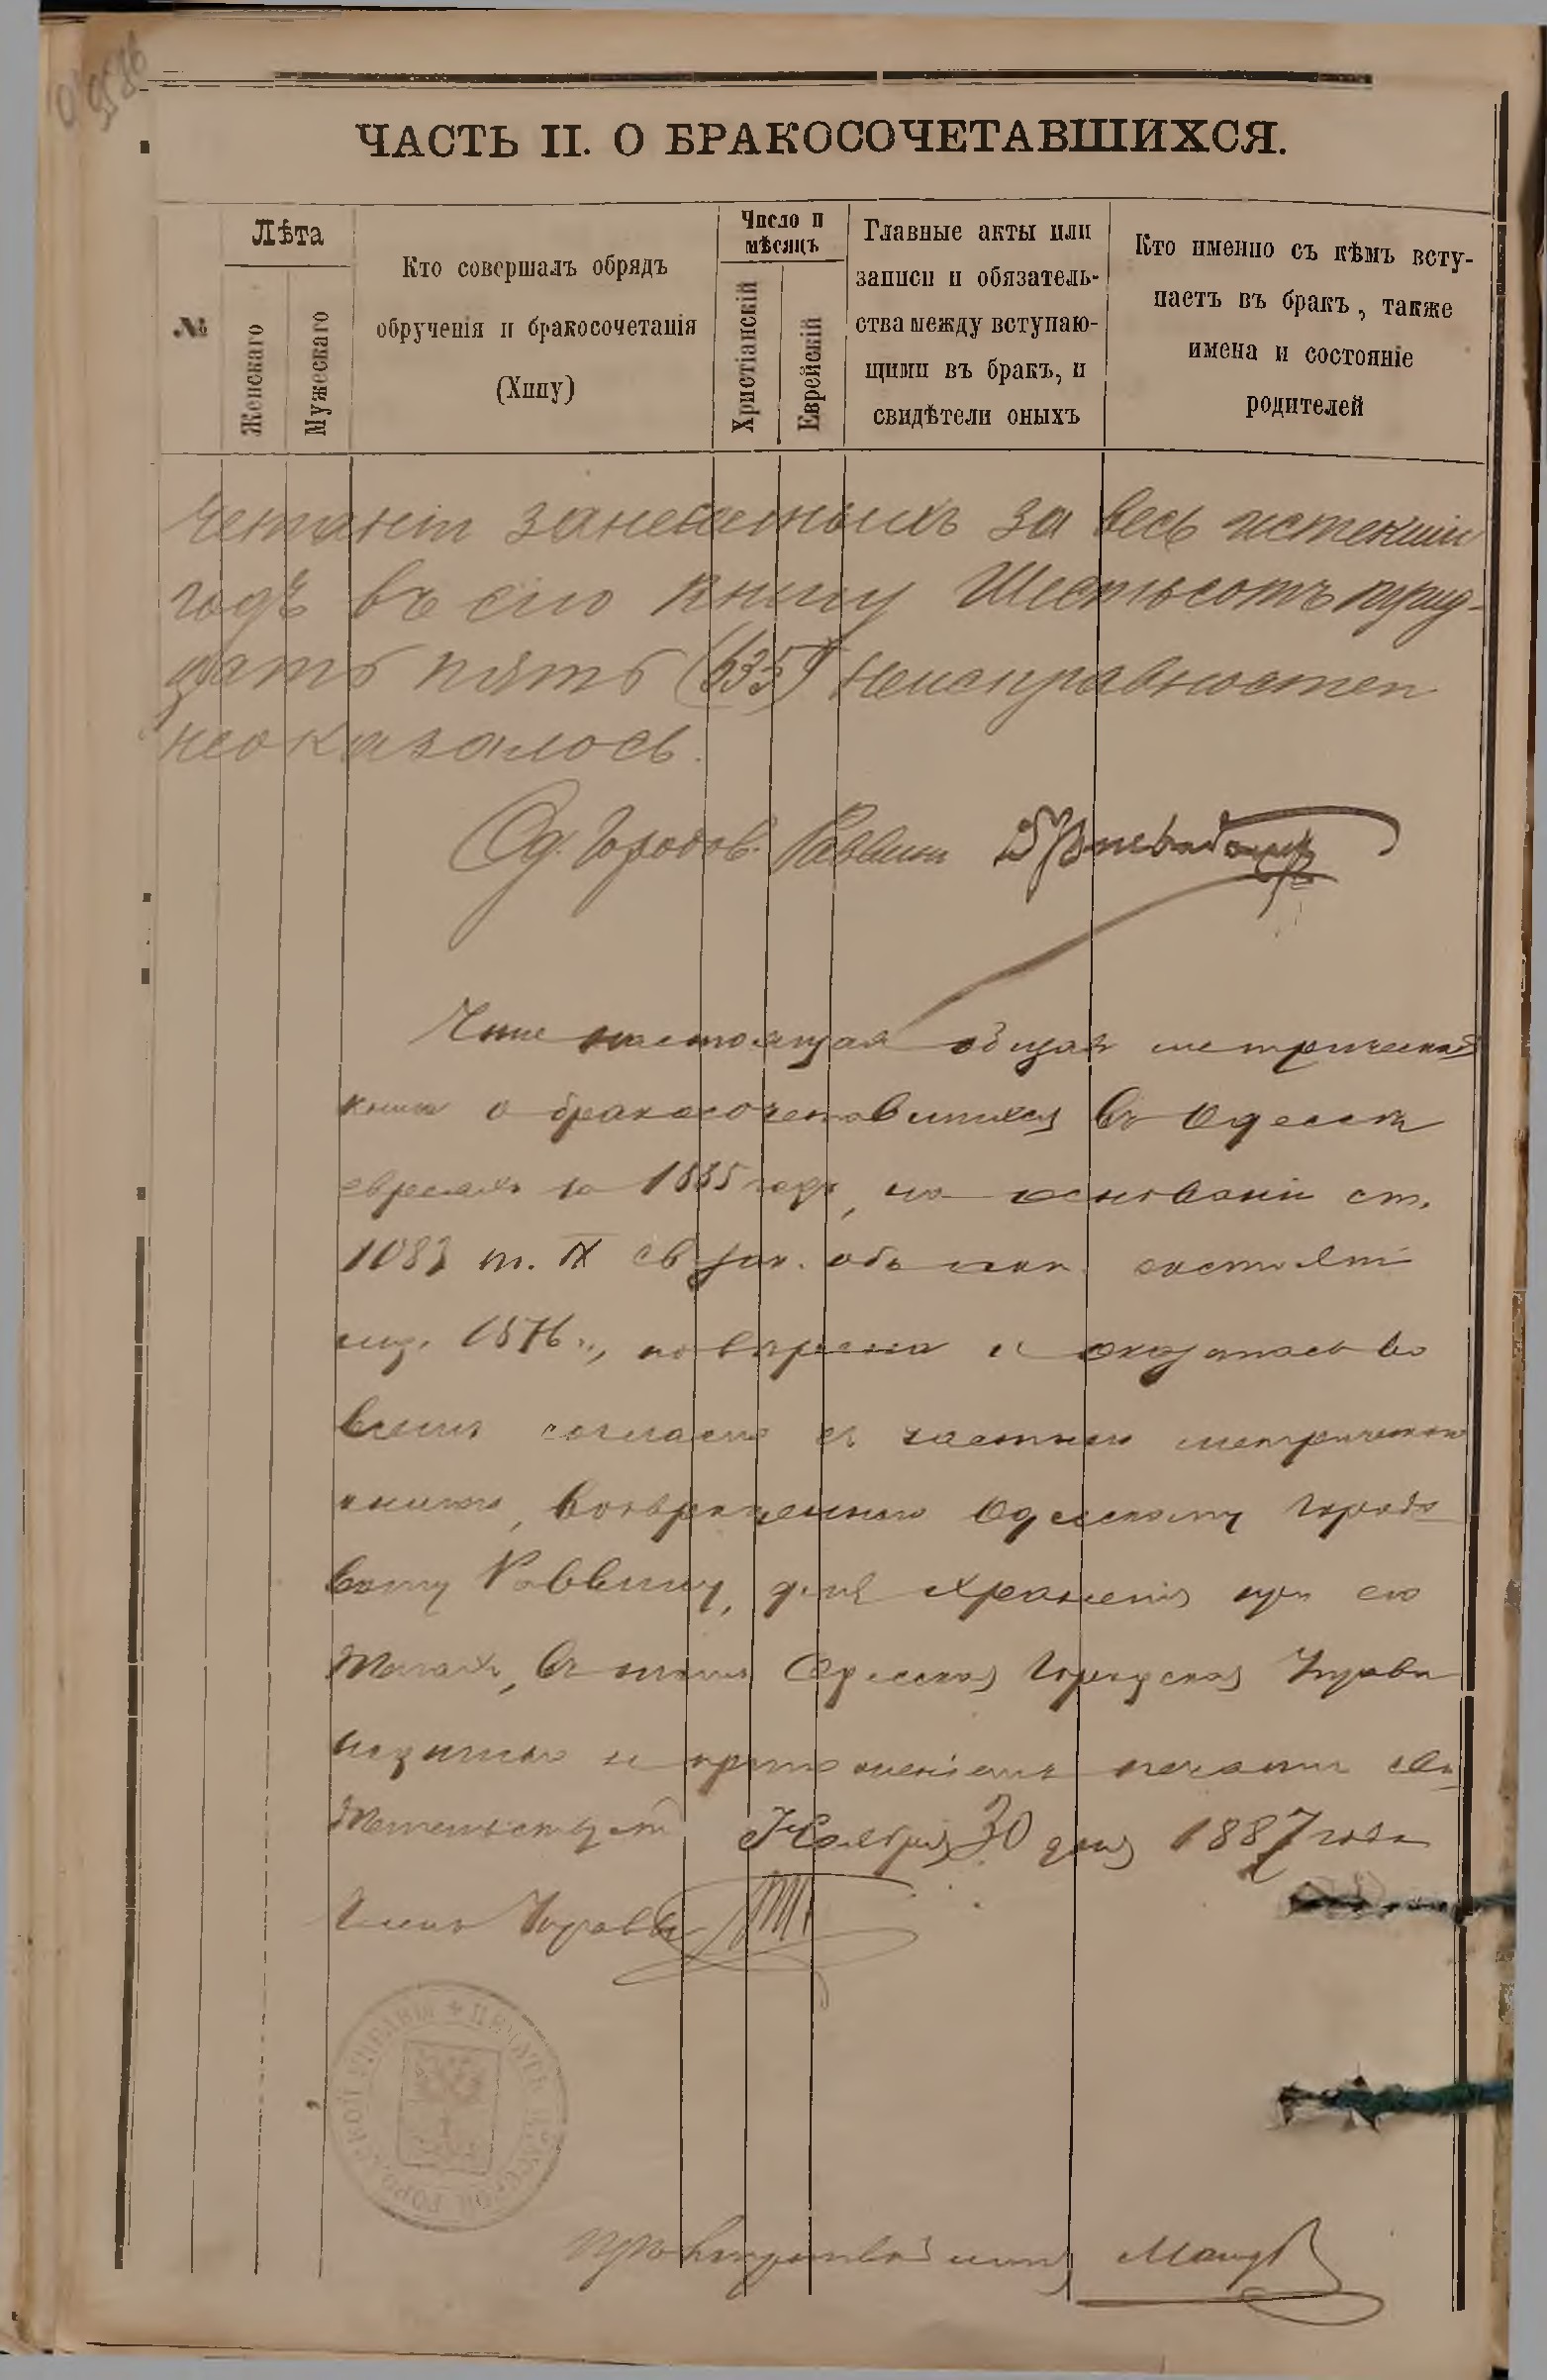 ЧАСТЬ II. О БРАКОСОЧЕТАВШИХСЯ.
№
Лѣта
Женскаго
Мужескаго
Кто совершалъ обрядъ
обрученія и бракосочетанія
(Хипу)
Число и
мѣсяцъ
Христіанскій
Еврейскій
Главные акты или
записи и обязатель-
ства между вступаю-
щими въ бракъ, и
свидѣтели оныхъ
Кто именно съ кѣмъ всту-
паетъ въ бракъ, также
имена и состояніе
родителей
четаній занесенныхъ за весь истекшій
годъ въ сію книгу Шестьсотъ трид-
цать пять (635) неисправностей
неоказалось.
Од. Городов. Раввинъ
настоящая общая метрическая
книга о бракосочетавшихся въ Одессѣ
евреяхъ за 1885 годъ, на основаніи ст.
1083 т. IX св. зак. состоян.
изд. 1876 г., повѣрена и оказалась во
всемъ согласно съ частною метрическою
книгою, возвращенною Одесскому Городо
вому Раввину, для храненія при его
дѣлахъ, въ чемъ Одесская Городская Управа
подписью и приложеніемъ печати сви
дѣтельствуетъ Ноября 30 дня 1887 года
Членъ Управы
ПЕЧАТЬ ОДЕССКОЙ ГОРОДСКОЙ УПРАВЫ